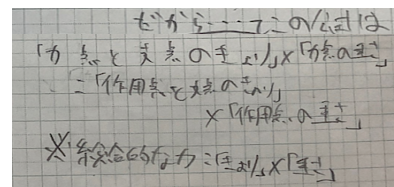 だから......てこの公式は
「力点と支点のきょり」×「力点の重さ」
=「作用点と支点のきょり」
×「作用点の重さ」
※総合的な力=「きょり」×「重さ」